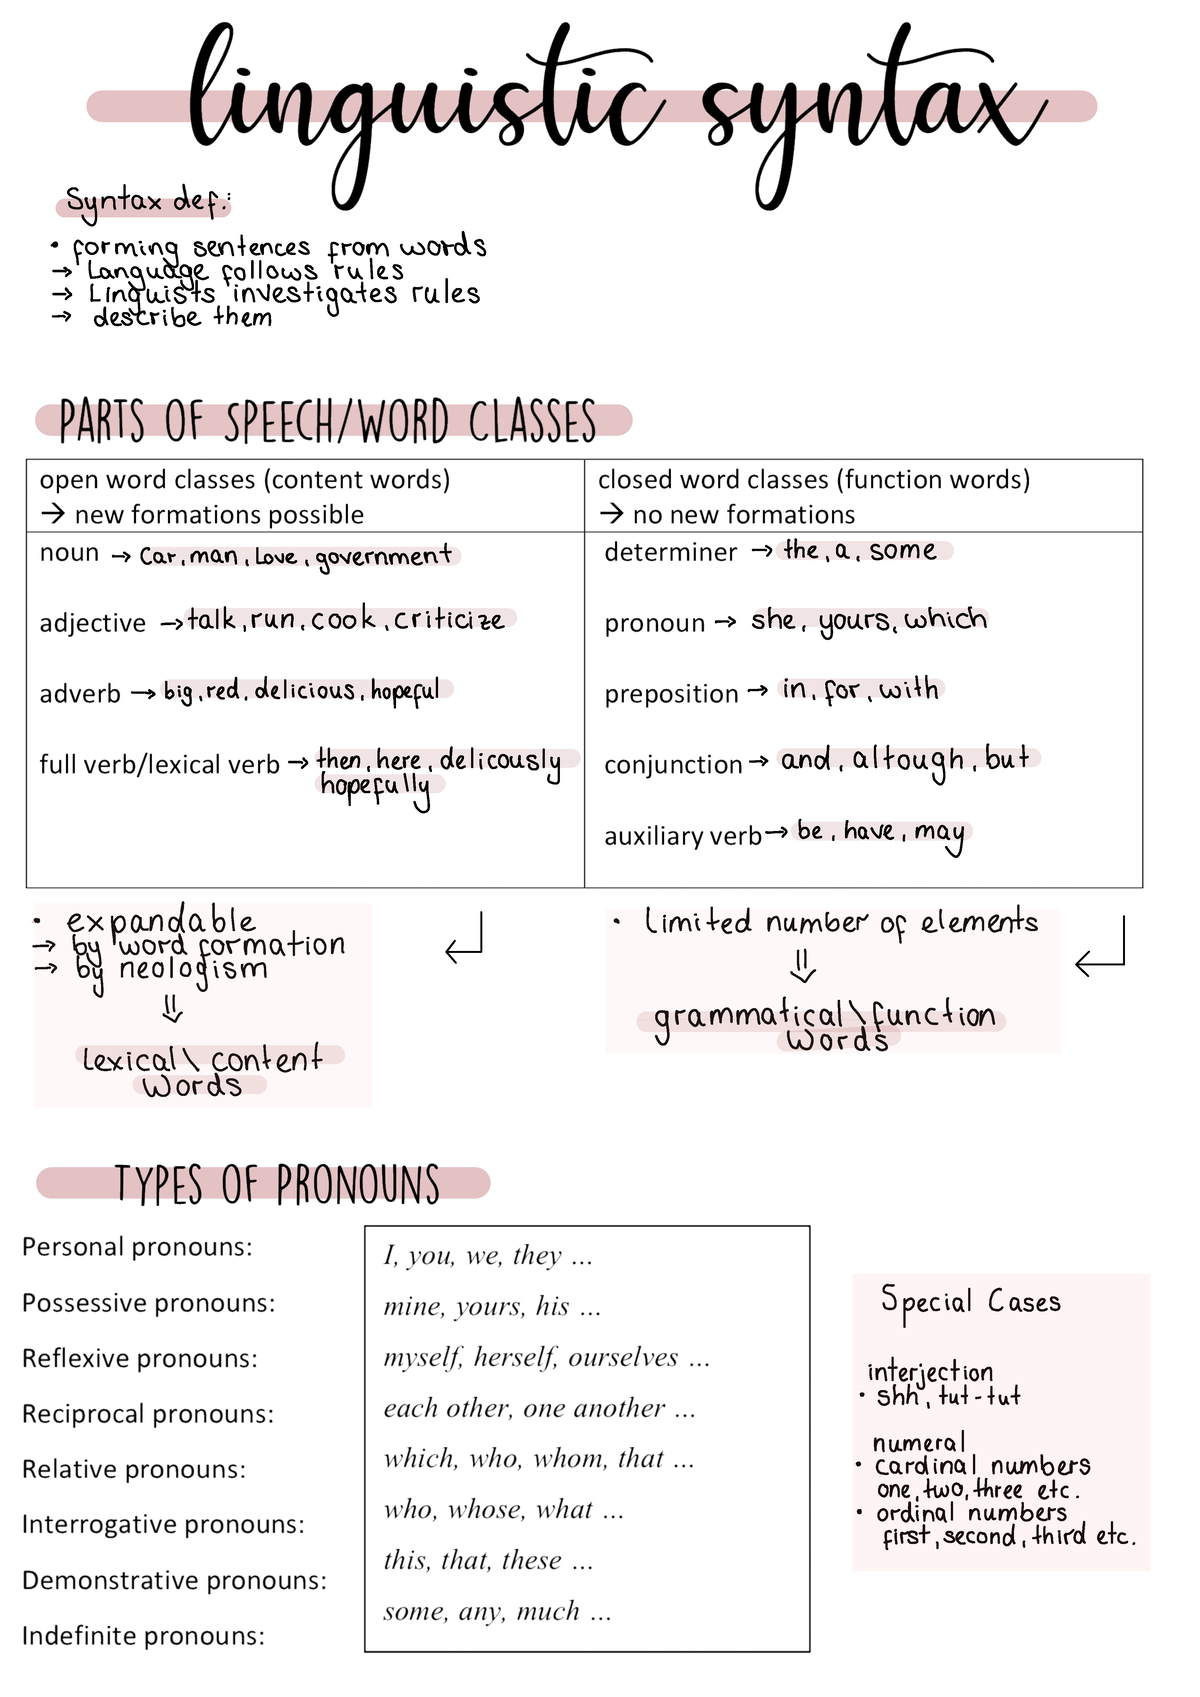 linguistic syntax
Syntax def.:
• forming sentences from words
→ Language follows rules
→ Linguists investigates rules
→ describe them
PARTS OF SPEECH/WORD CLASSES
open word classes (content words)
→ new formations possible
closed word classes (function words)
→ no new formations
noun → Car, man, Love, government
adjective → talk, run, cook, criticize
adverb → big, red, delicious, hopeful
full verb/lexical verb → then, here, delicously
hopefully
determiner → the, a, some
pronoun → she, yours, which
preposition → in, for, with
conjunction → and, altough, but
auxiliary verb → be, have, may
• expandable
→ by word formation
→ by neologism
⇓
lexical\ content
words
• limited number of elements
⇓
grammatical\function
words
TYPES OF PRONOUNS
Personal pronouns:
Possessive pronouns:
Reflexive pronouns:
Reciprocal pronouns:
Relative pronouns:
Interrogative pronouns:
Demonstrative pronouns:
Indefinite pronouns:
I, you, we, they ...
mine, yours, his ...
myself, herself, ourselves ...
each other, one another ...
which, who, whom, that ...
who, whose, what ...
this, that, these ...
some, any, much ...
Special Cases
interjection
• shh, tut-tut
numeral
• cardinal numbers
one, two, three etc.
• ordinal numbers
first, second, third etc.